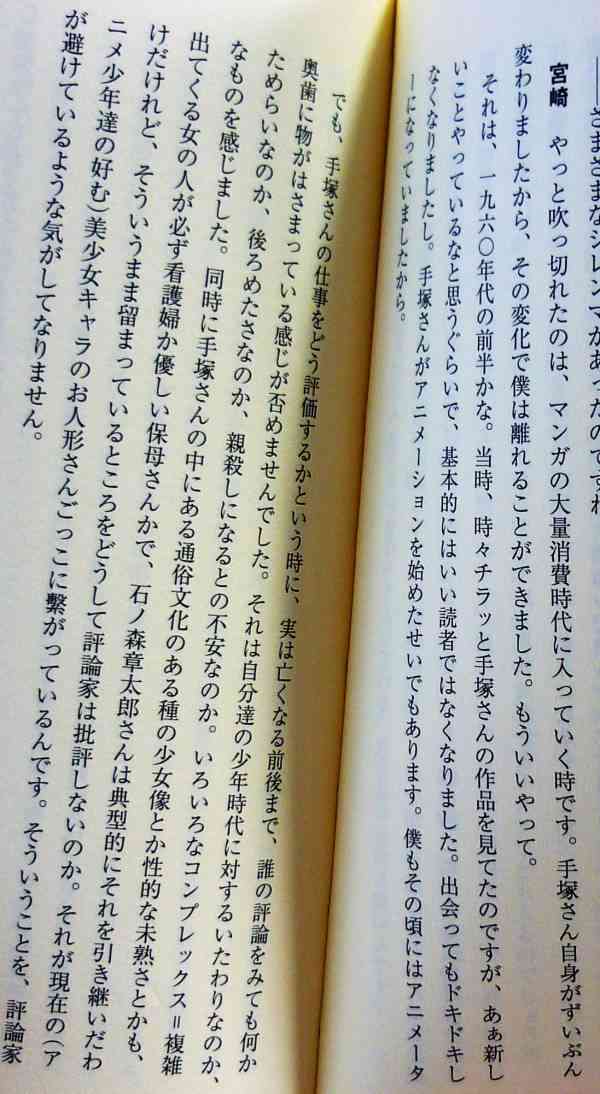 ――さまざまなジレンマがあったのですね
宮崎　やっと吹っ切れたのは、マンガの大量消費時代に入っていく時です。手塚さん自身がずいぶん
変わりましたから、その変化で僕は離れることができました。もういいやって。
それは、一九六〇年代の前半かな。当時、時々チラッと手塚さんの作品を見てたのですが、あぁ新し
いことやっているなと思うぐらいで、基本的にはいい読者ではなくなりました。出会ってもドキドキし
なくなりましたし。手塚さんがアニメーションを始めたせいでもあります。僕もその頃にはアニメータ
ーになっていましたから。
でも、手塚さんの仕事をどう評価するかという時に、実は亡くなる前後まで、誰の評論をみても何か
奥歯に物がはさまっている感じが否めませんでした。それは自分達の少年時代に対するいたわりなのか、
ためらいなのか、後ろめたさなのか、親殺しになるとの不安なのか。いろいろなコンプレックス＝複雑
なものを感じました。同時に手塚さんの中にある通俗文化のある種の少女像とか性的な未熟さとかも、
出てくる女の人が必ず看護婦か優しい保母さんかで、石ノ森章太郎さんは典型的にそれを引き継いだわ
けだけれど、そういうまま留まっているところをどうして評論家は批評しないのか。それが現在の（ア
ニメ少年達の好む）美少女キャラのお人形さんごっこに繋がっているんです。そういうことを、評論家
が避けているような気がしてなりません。